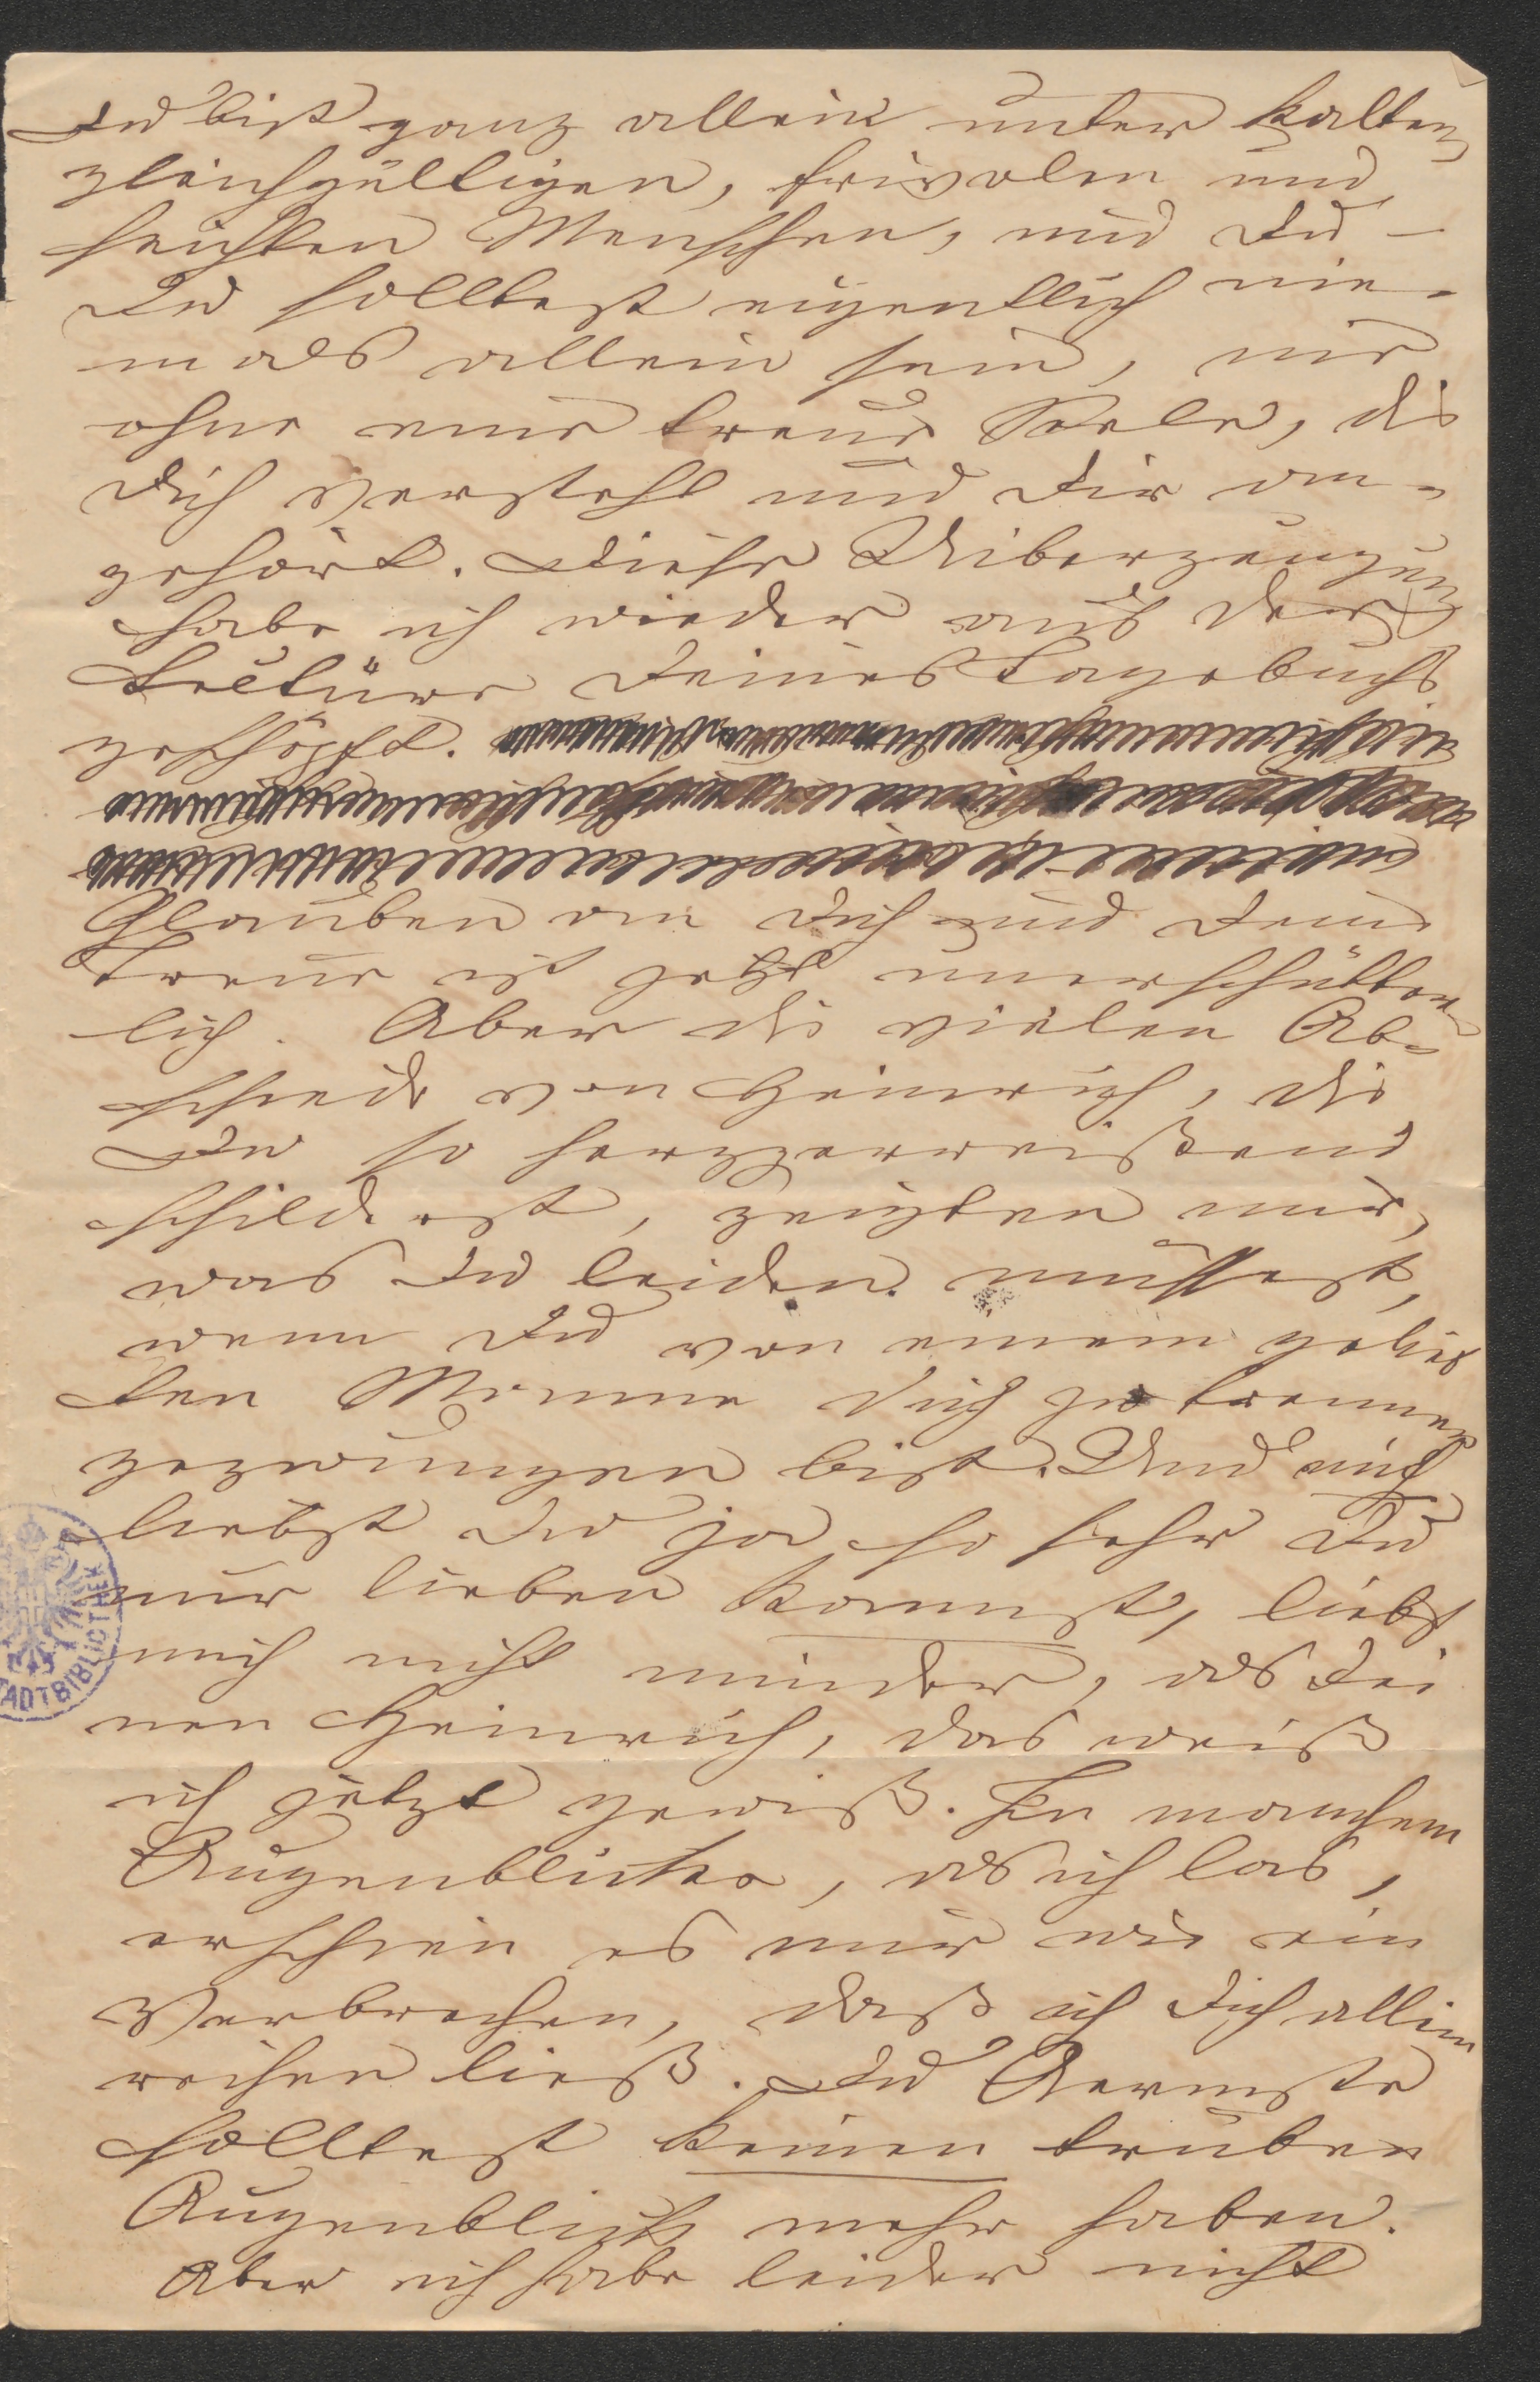 Du bist ganz allein unter kalten
gleichgültigen, frivolen und
seichten Menschen, und Du –
Du solltest eigentlich nie-
mals allein sein, nie
ohne eine treue Seele, die
Dich versteht und Dir an-
gehört. Diese Ueberzeugung
habe ich wieder aus der
Lectüre Deines Tagebuchs
geschöpft.
Glauben an Dich und Deine
Treue ist jetzt unerschütter-
lich. Aber die vielen Ab-
schiede von Heinrich, die
Du so herzzerreißend
schilderst, zeigten mir,
was Du leiden mußtest,
wenn Du von einem gelieb
ten Manne Dich zu trennen
gezwungen bist. Und mich
liebst Du ja so sehr Du
nur lieben kannst, liebst
mich nicht minder, als Dei
nen Heinrich, das weiß
ich jetzt gewiß. In manchem
Augenblicke, als ich las,
erschien es mir wie ein
Verbrechen, daß ich Dich allein
reisen ließ. Du Aermste
solltest keinen trüben
Augenblick mehr haben.
Aber ich habe leider nicht
STADTBIBLIOTHEK